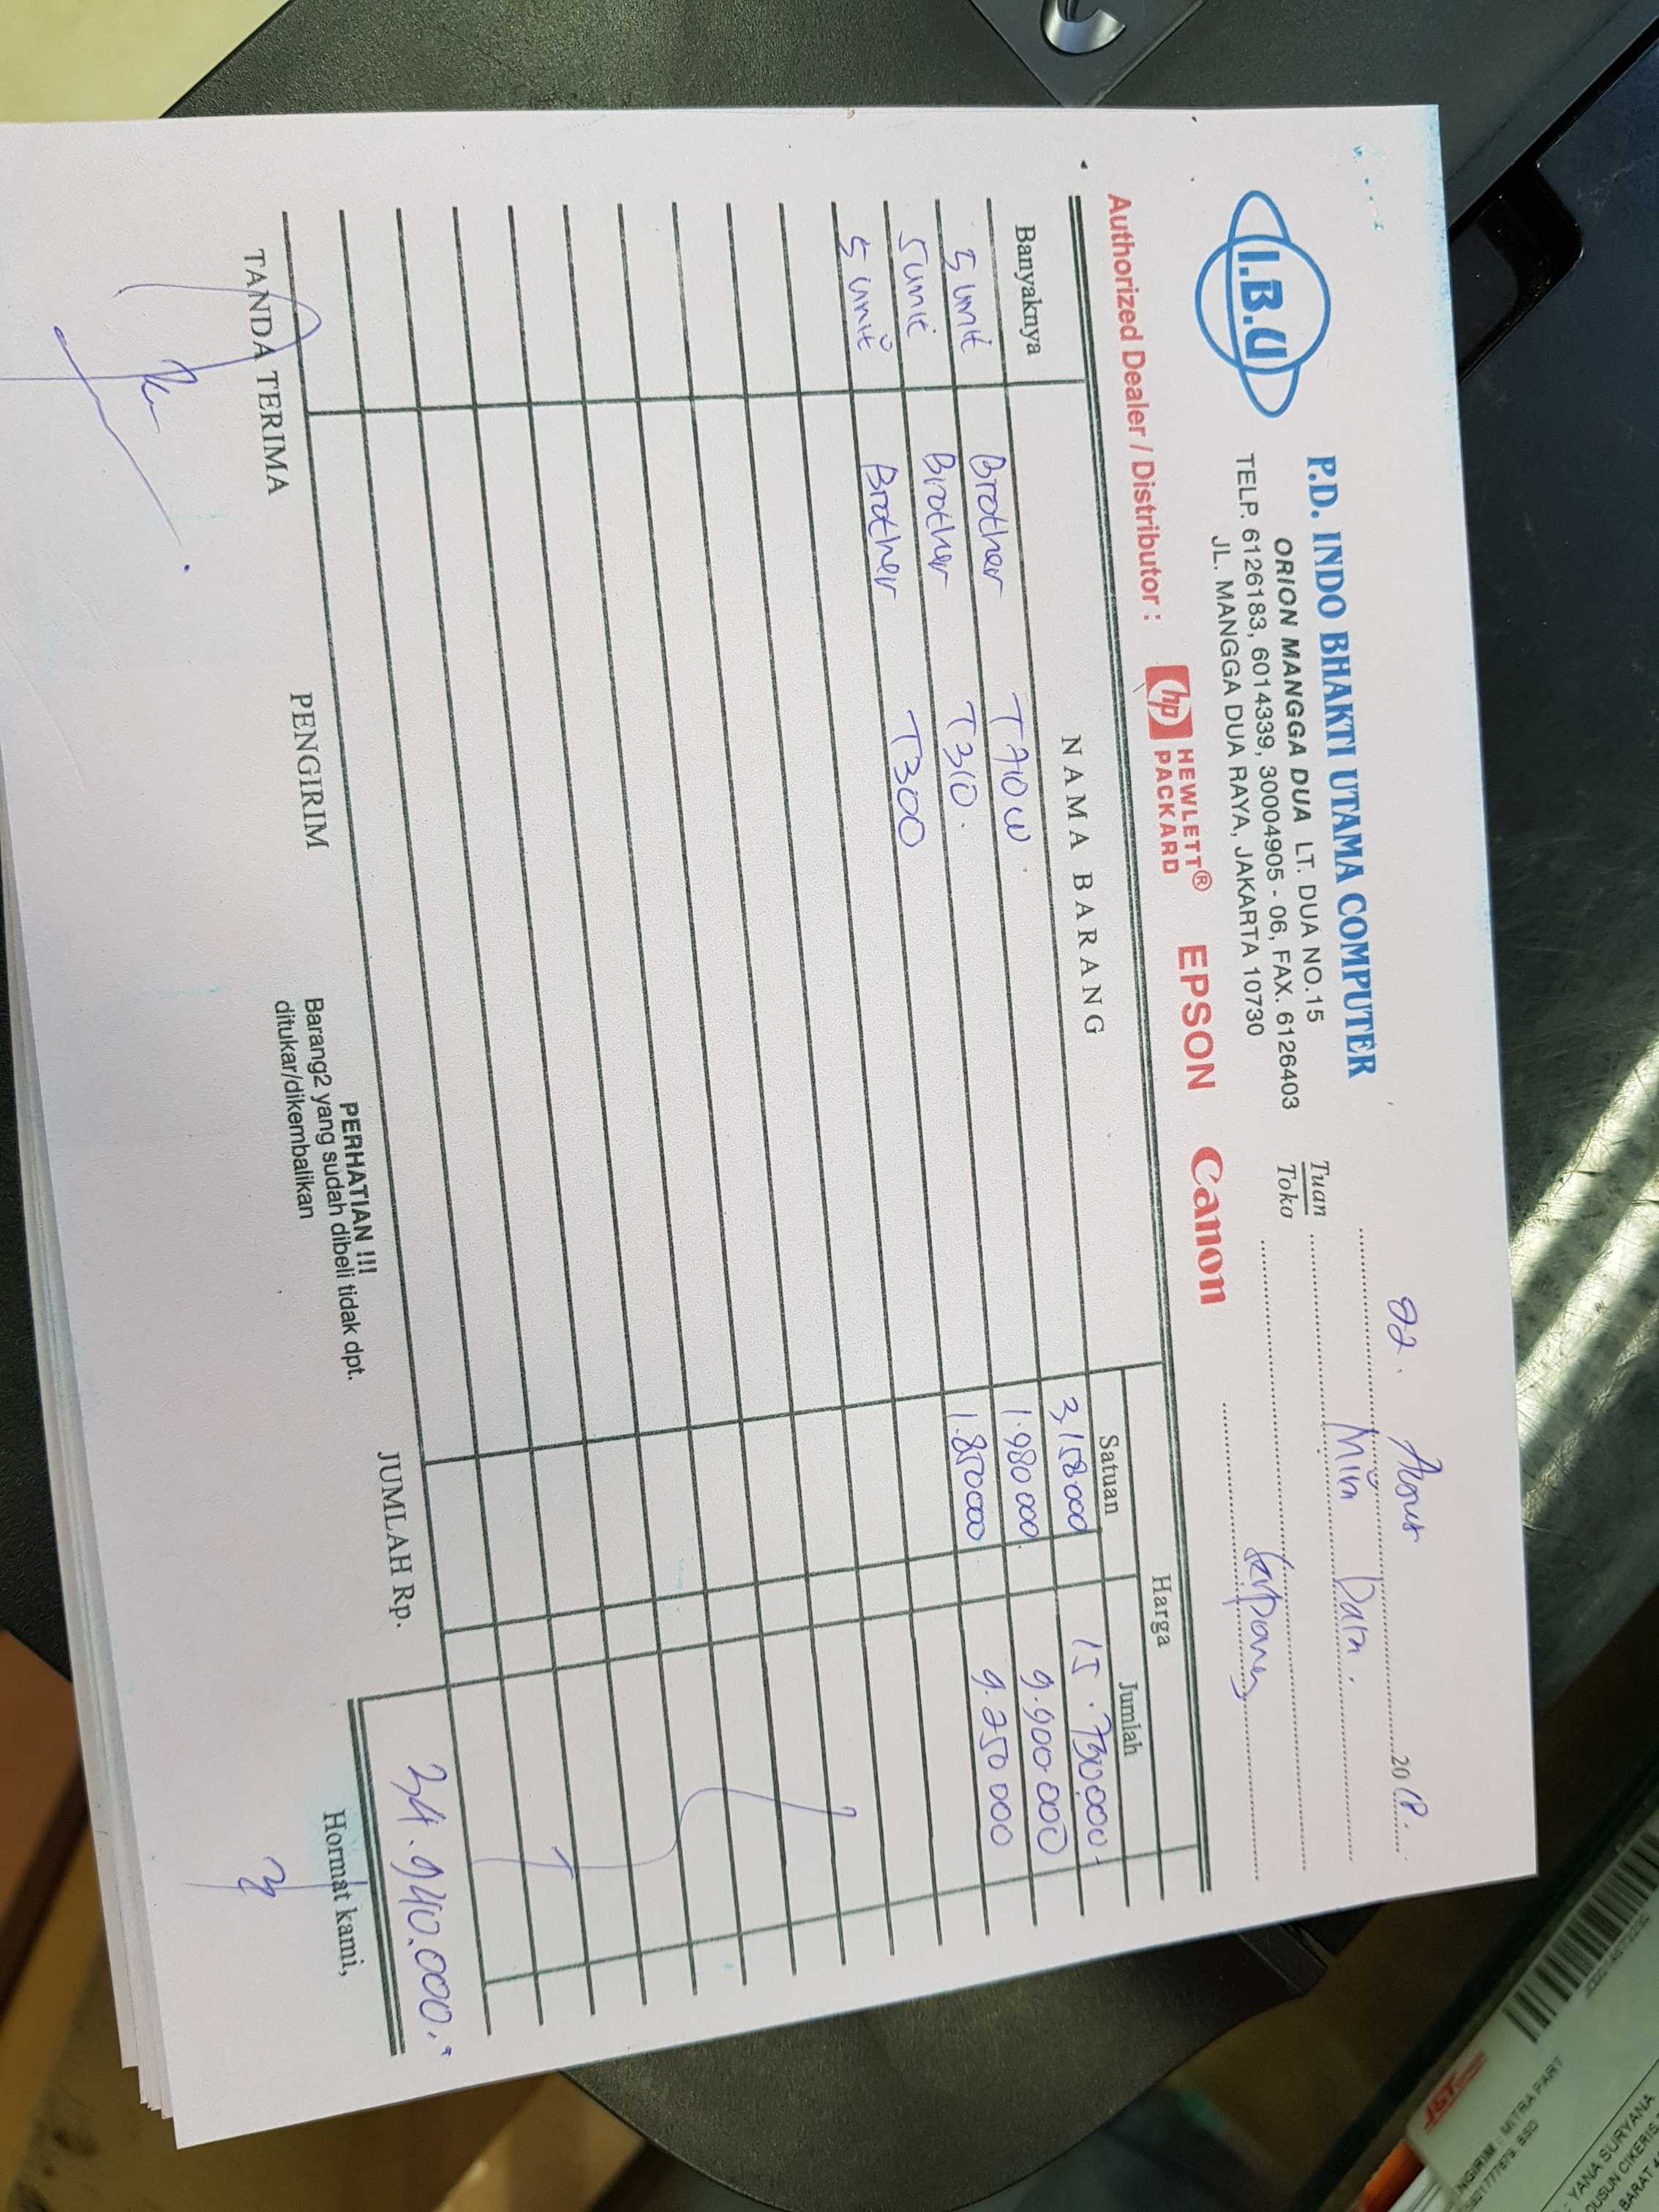 22. Agust 2018.
I.B.U
P.D. INDO BHAKTI UTAMA COMPUTER
ORION MANGGA DUA LT. DUA NO.15
TELP. 6126183, 6014339, 30004905 - 06, FAX. 6126403
JL. MANGGA DUA RAYA, JAKARTA 10730
Tuan
Toko
Data.
Serpong
Authorized Dealer / Distributor :
hp HEWLETT® PACKARD EPSON Canon
Banyaknya NAMA BARANG Harga
Satuan Jumlah
5 unit Brother T710W. 15.730.000
5 unit Brother T310. 1.980.000 9.900.000
5 unit Brother T300 1.850000 9.250 000
JUMLAH Rp. 34.940.000.
TANDA TERIMA
PENGIRIM
PERHATIAN !!!
Barang2 yang sudah dibeli tidak dpt.
ditukar/dikembalikan
Hormat kami,
J&T
: MITRA PART
YANA SURYANA
DUSUN CIKERIS
BARAT